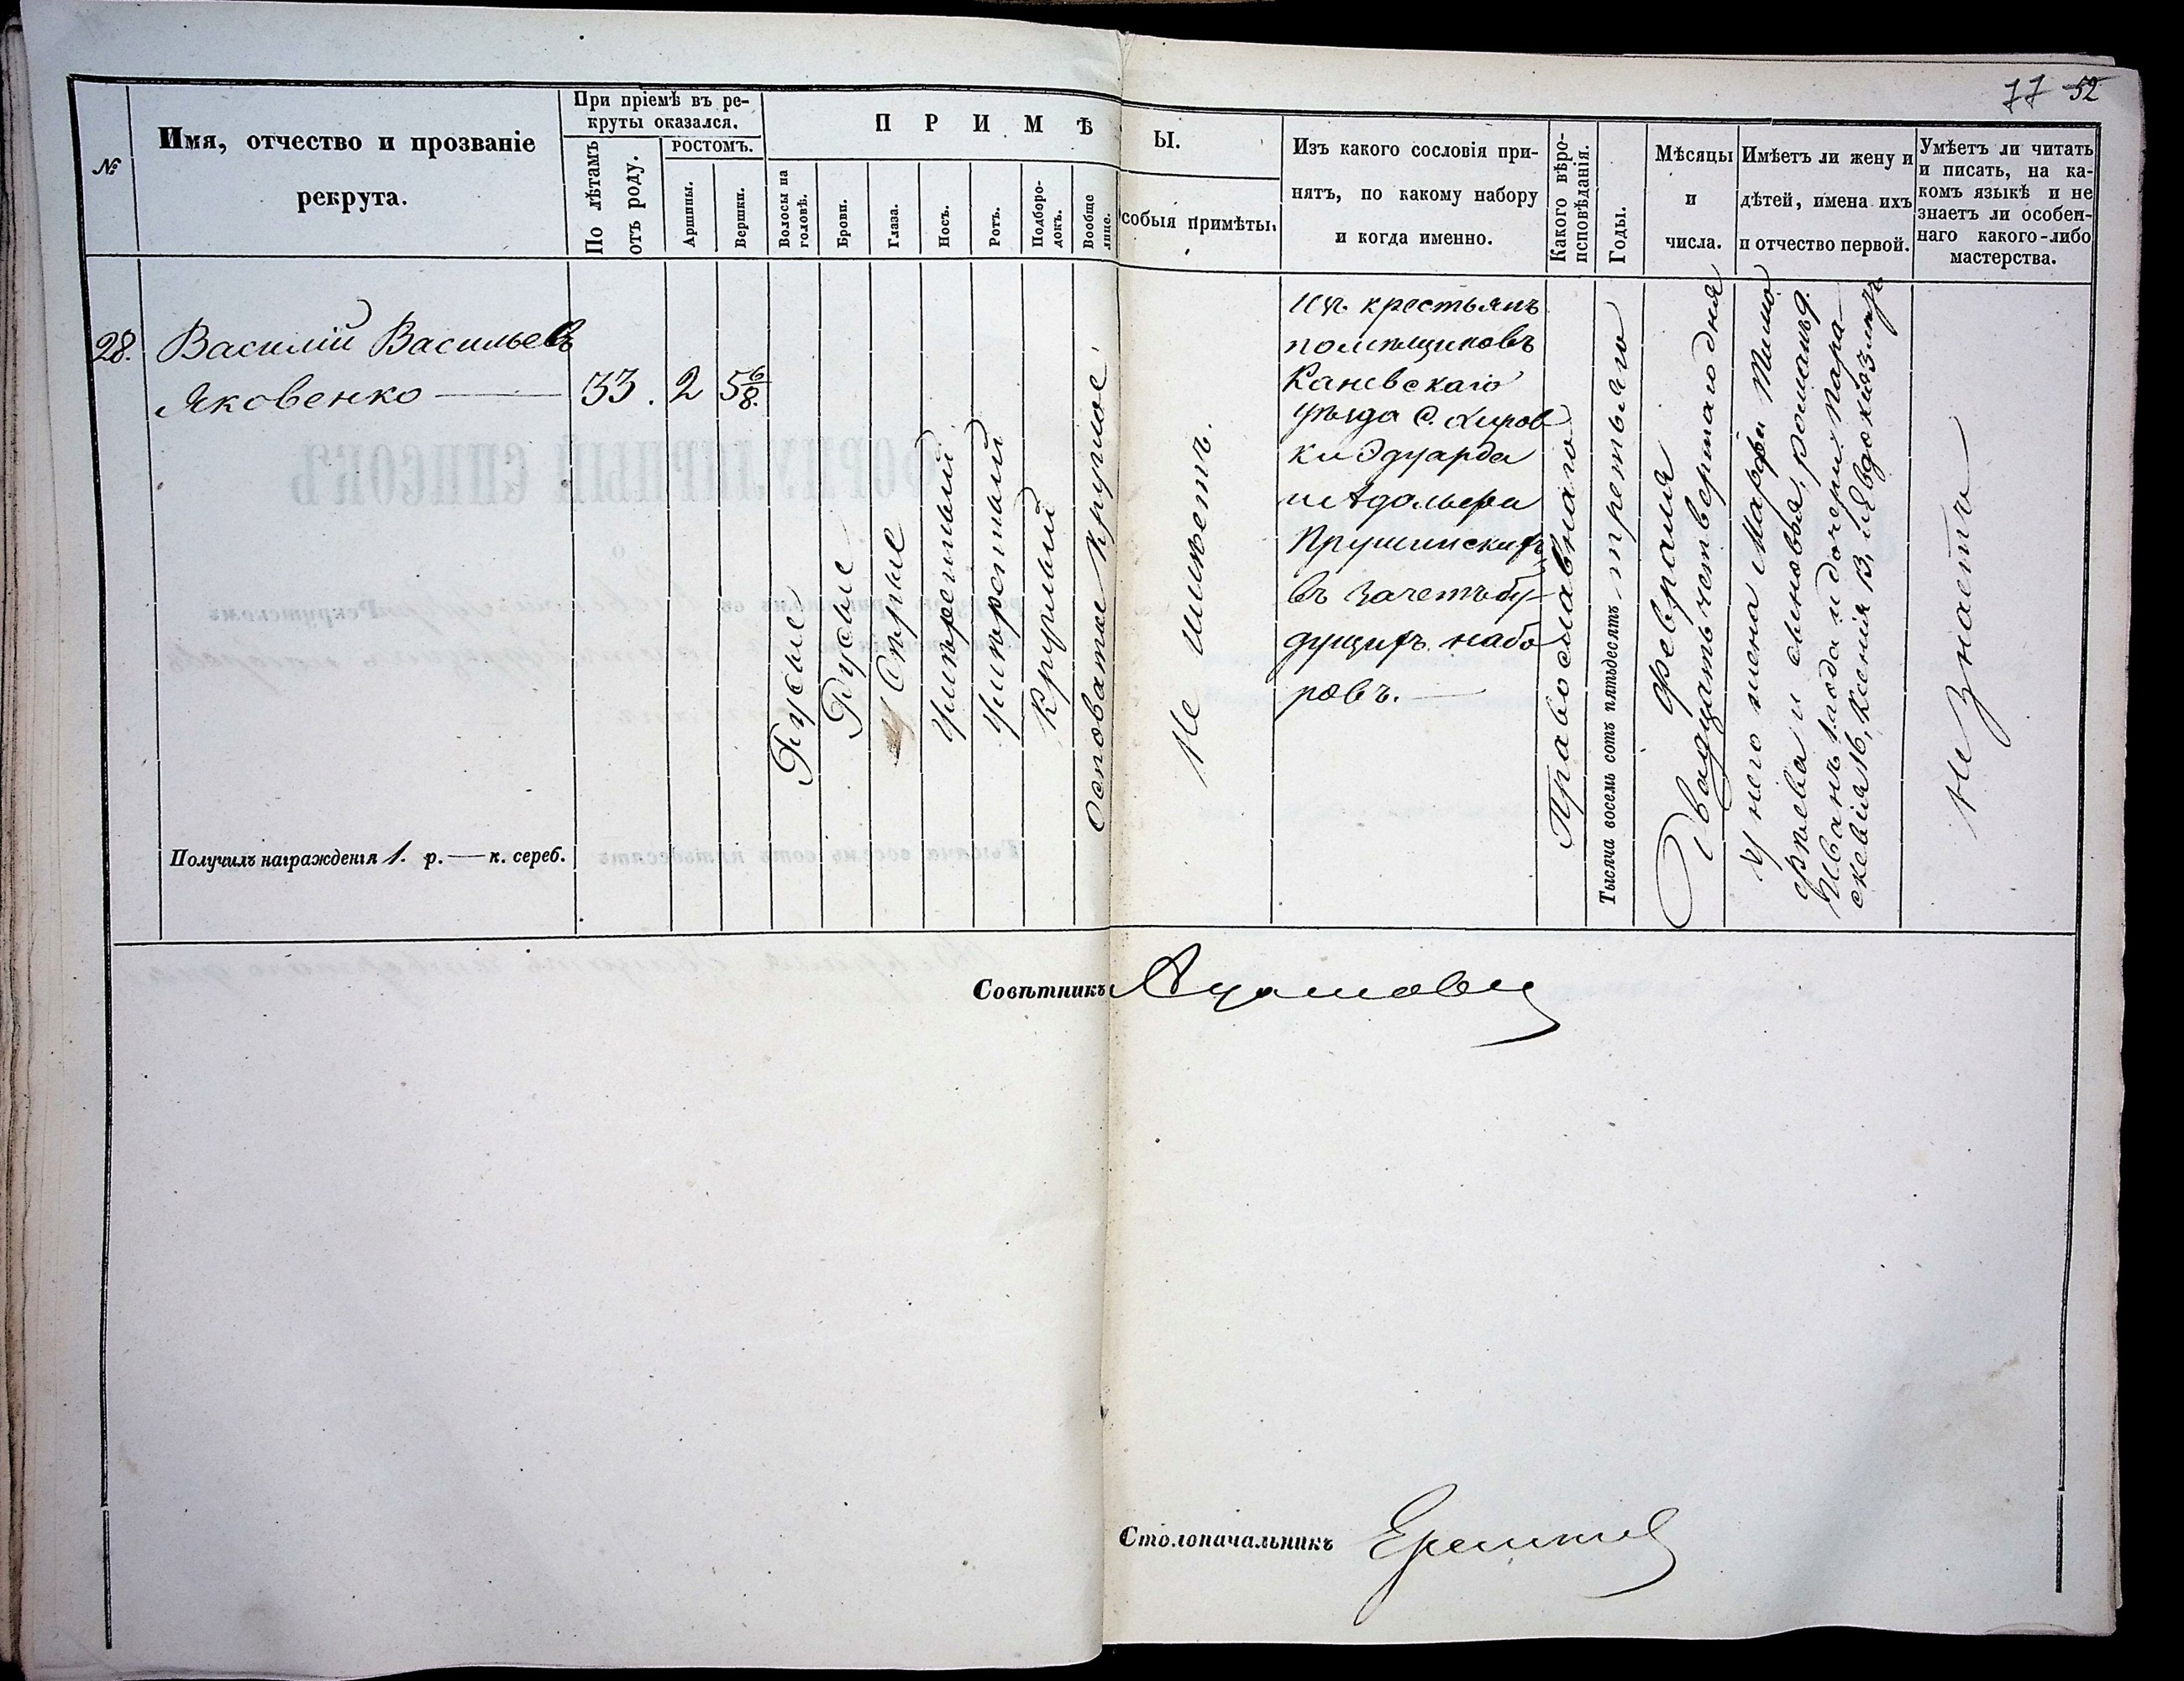 77 52
№
Имя, отчество и прозваніе
рекрута.
При пріемѣ въ ре-
круты оказался.
По лѣтамъ
отъ роду.
РОСТОМЪ.
Аршины.
Вершки.
ПРИМѢ
Ы.
Волосы на
головѣ.
Брови.
Глаза.
Носъ.
Ротъ.
Подборо-
докъ.
Вообще
лице.
собыя примѣты.
Изъ какого сословія при-
нятъ, по какому набору
и когда именно.
Какого вѣро-
исповѣданія.
Годы.
Мѣсяцы
и
числа.
Имѣетъ ли жену и
дѣтей, имена ихъ
и отчество первой.
Умѣетъ ли читать
и писать, на ка-
комъ языкѣ и не
знаетъ ли особен-
наго какого-либо
мастерства.
28.
Василій Васильевъ
Яковенко —
33.
2
5 6/8.
Русые
Русые
Сѣрые
Умѣренный
Умѣренный
Круглый
Осповатое Круглое
Не имѣетъ.
изъ крестьянъ
помѣщиковъ
Каневскаго
уѣзда С.
ки Эдуарда
и Адольфа
Прушинскихъ
въ зачетъ бу-
дущихъ набо
ровъ. —
Православнаго
Тысяча восемь сотъ пятьдесятъ третьяго
Февраля
Двадцать четвертаго дня
У него жена Марфа Тимо
фѣева и сыновья, Романъ 9.
Иванъ 1 года и дочери Пара-
скевія 16, Ксенія 13, и Евдокія 3 лѣтъ
Не знаетъ
Получилъ награжденія 1. р. — к. сереб.
Совѣтникъ
Столоначальникъ